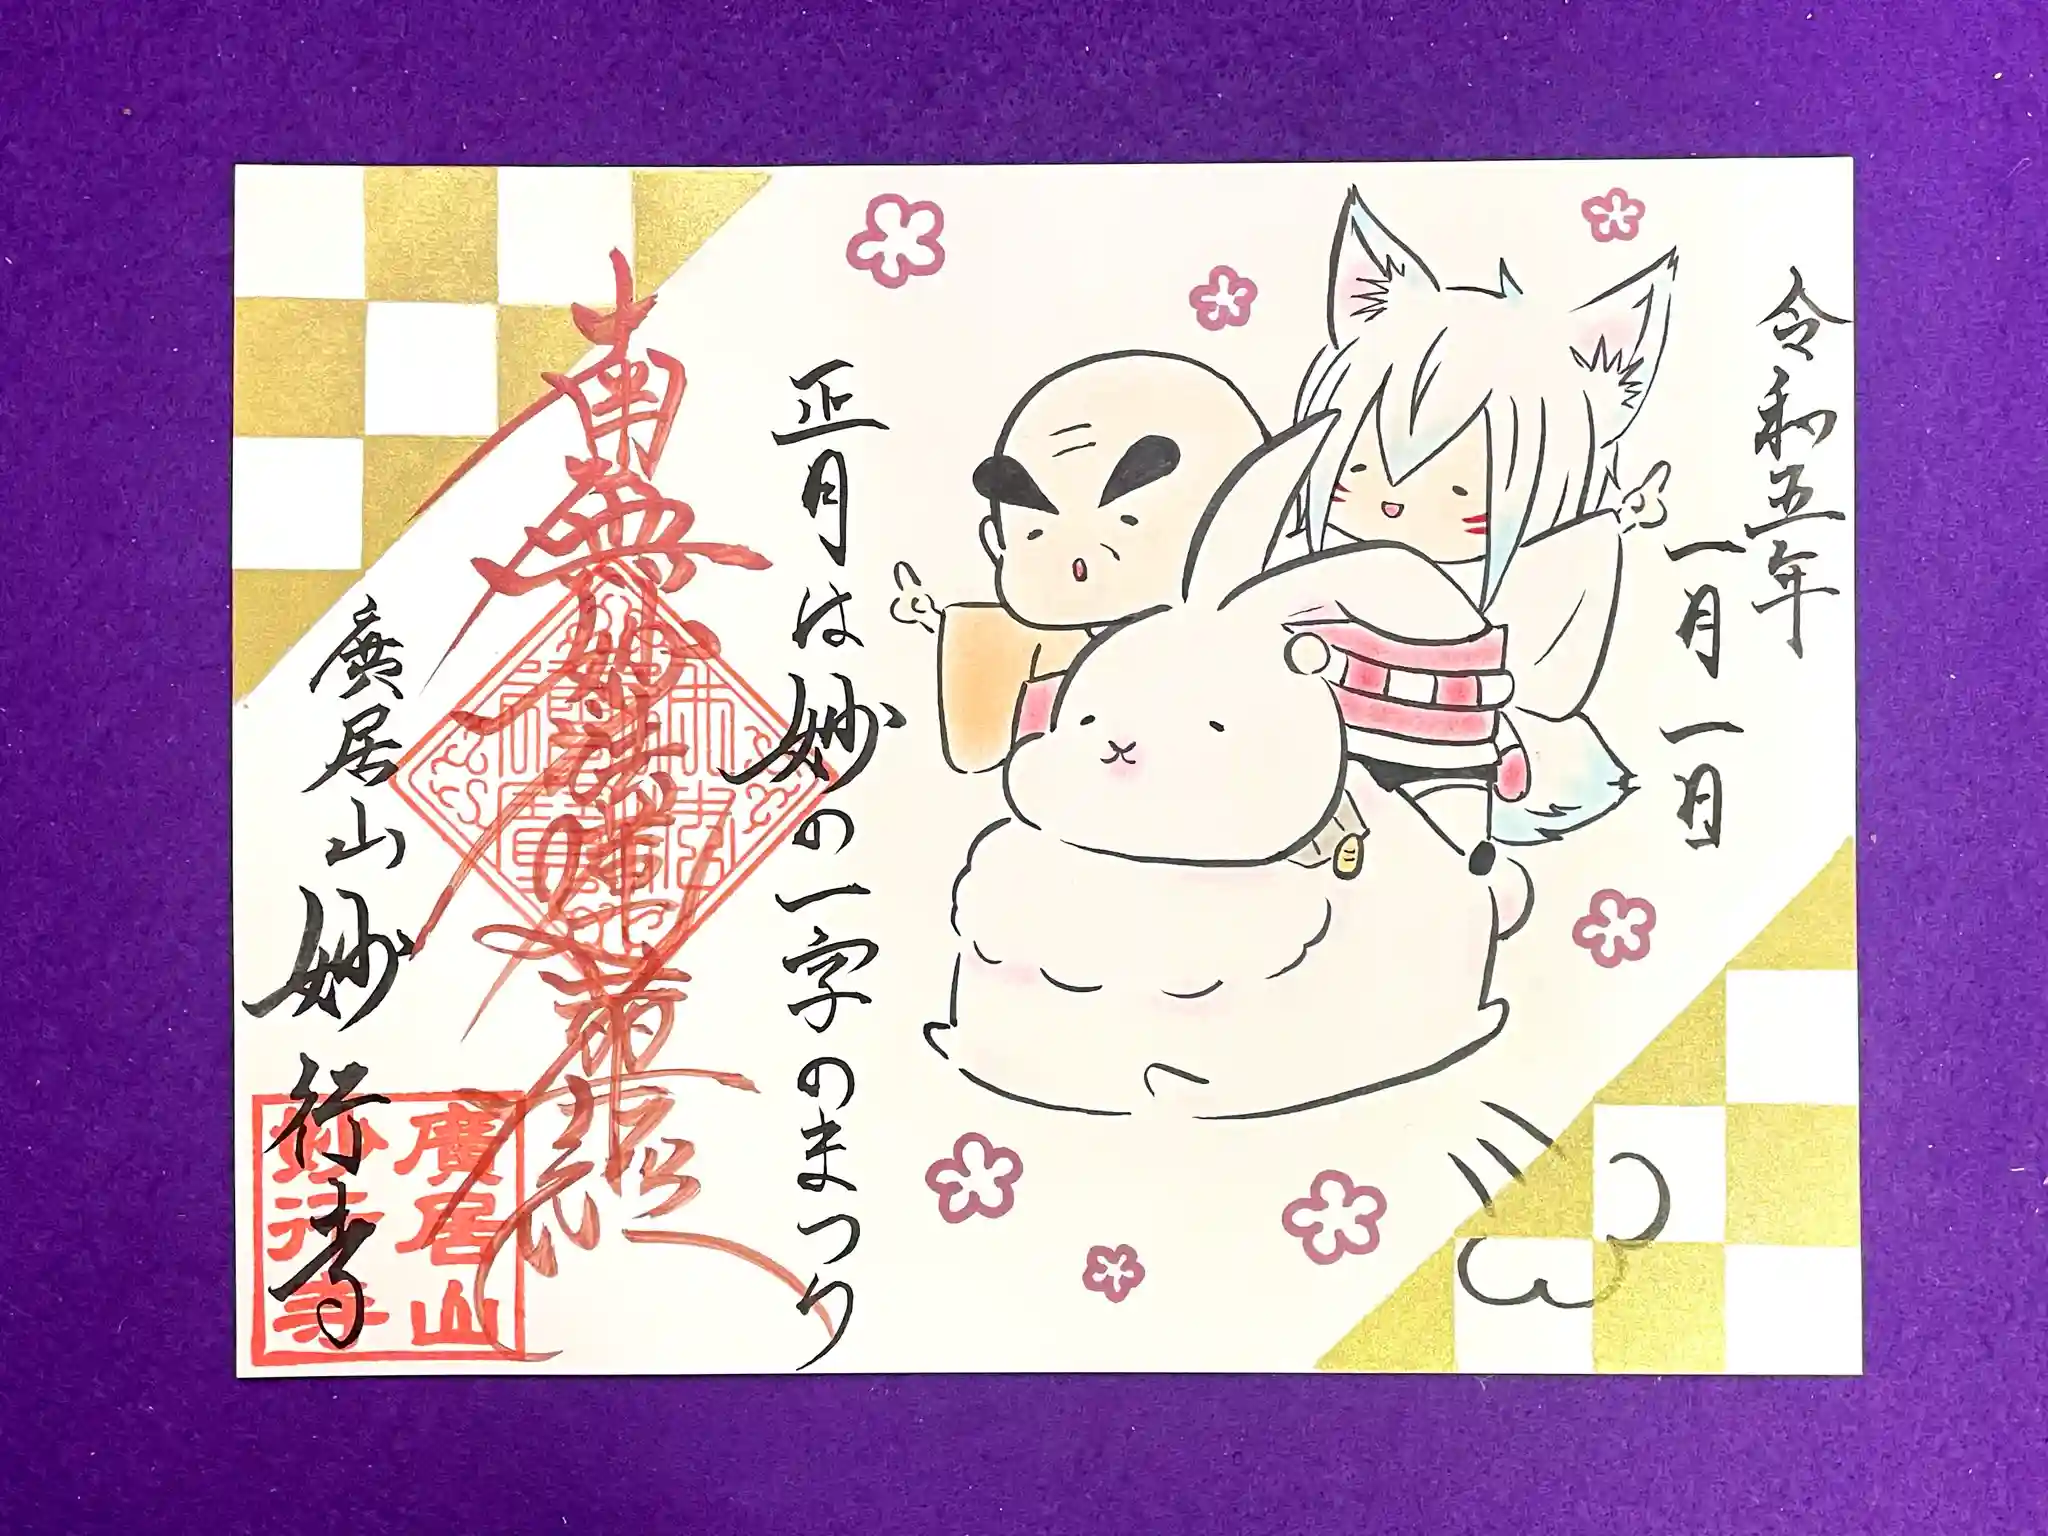 令和五年
一月一日
正月は妙の一字のまつり
南無妙法蓮華経
廣居山妙行寺
廣居山
妙行寺